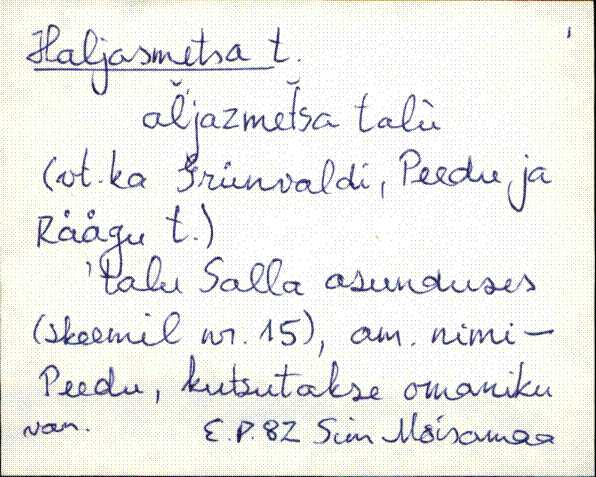 Haljasmetsa t.
al̆'jazmet̆sa talù
(vt. ka Grünvaldi, Peedu ja
Råågu t.)
'talu Salla asunduses
(skeemil nr. 15), am. nimi –
Peedu, kutsutakse omaniku
van. E.P. 82 Sim Mõisamaa